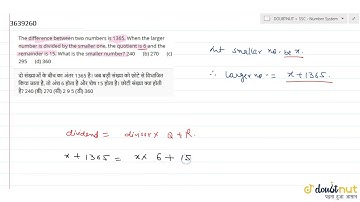 DOUBTNUT > SSC : Number System
3639260
The difference between two numbers is 1365. When the larger
number is divided by the smaller one, the quotient is 6 and the
remainder is 15. What is the smaller number? 240 (b) 270 (c)
295 (d) 360
दो संख्याओं के बीच का अंतर 1365 है। जब बड़ी संख्या को छोटे से विभाजित
किया जाता है, तो अंश 6 होता है और शेष 15 होता है। छोटी संख्या क्या होती
है? 240 (की) 270 (की) 2 9 5 (की) 360
let smaller no. be x.
∴ larger no. = x + 1365.
dividend = divisor x Q + R.
x + 1365 = x x 6 + 15
doubtnut